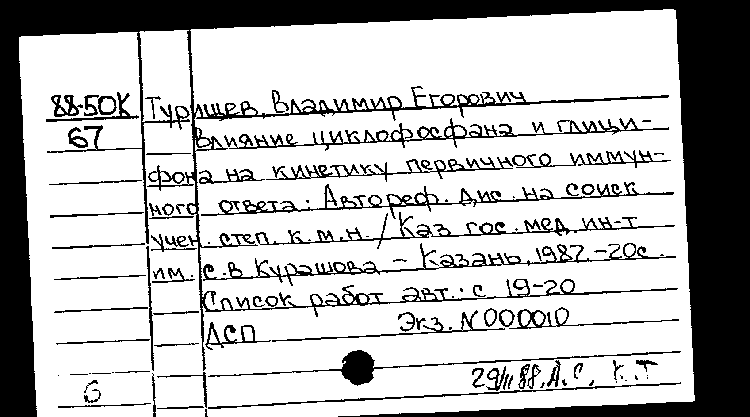 88-50К Турищев, Владимир Егорович
67 Влияние циклофосфана и глици-
фона на кинетику первичного иммун-
ного ответа: Автореф. дис. на соиск
учен. степ. к.м.н. / Каз гос. мед. ин-т
им. С.В Курашова - Казань, 1987. -20с.
Список работ авт.: с 19-20
ДСП Экз. N 000010
6 29/II 88. А.С. К.Т